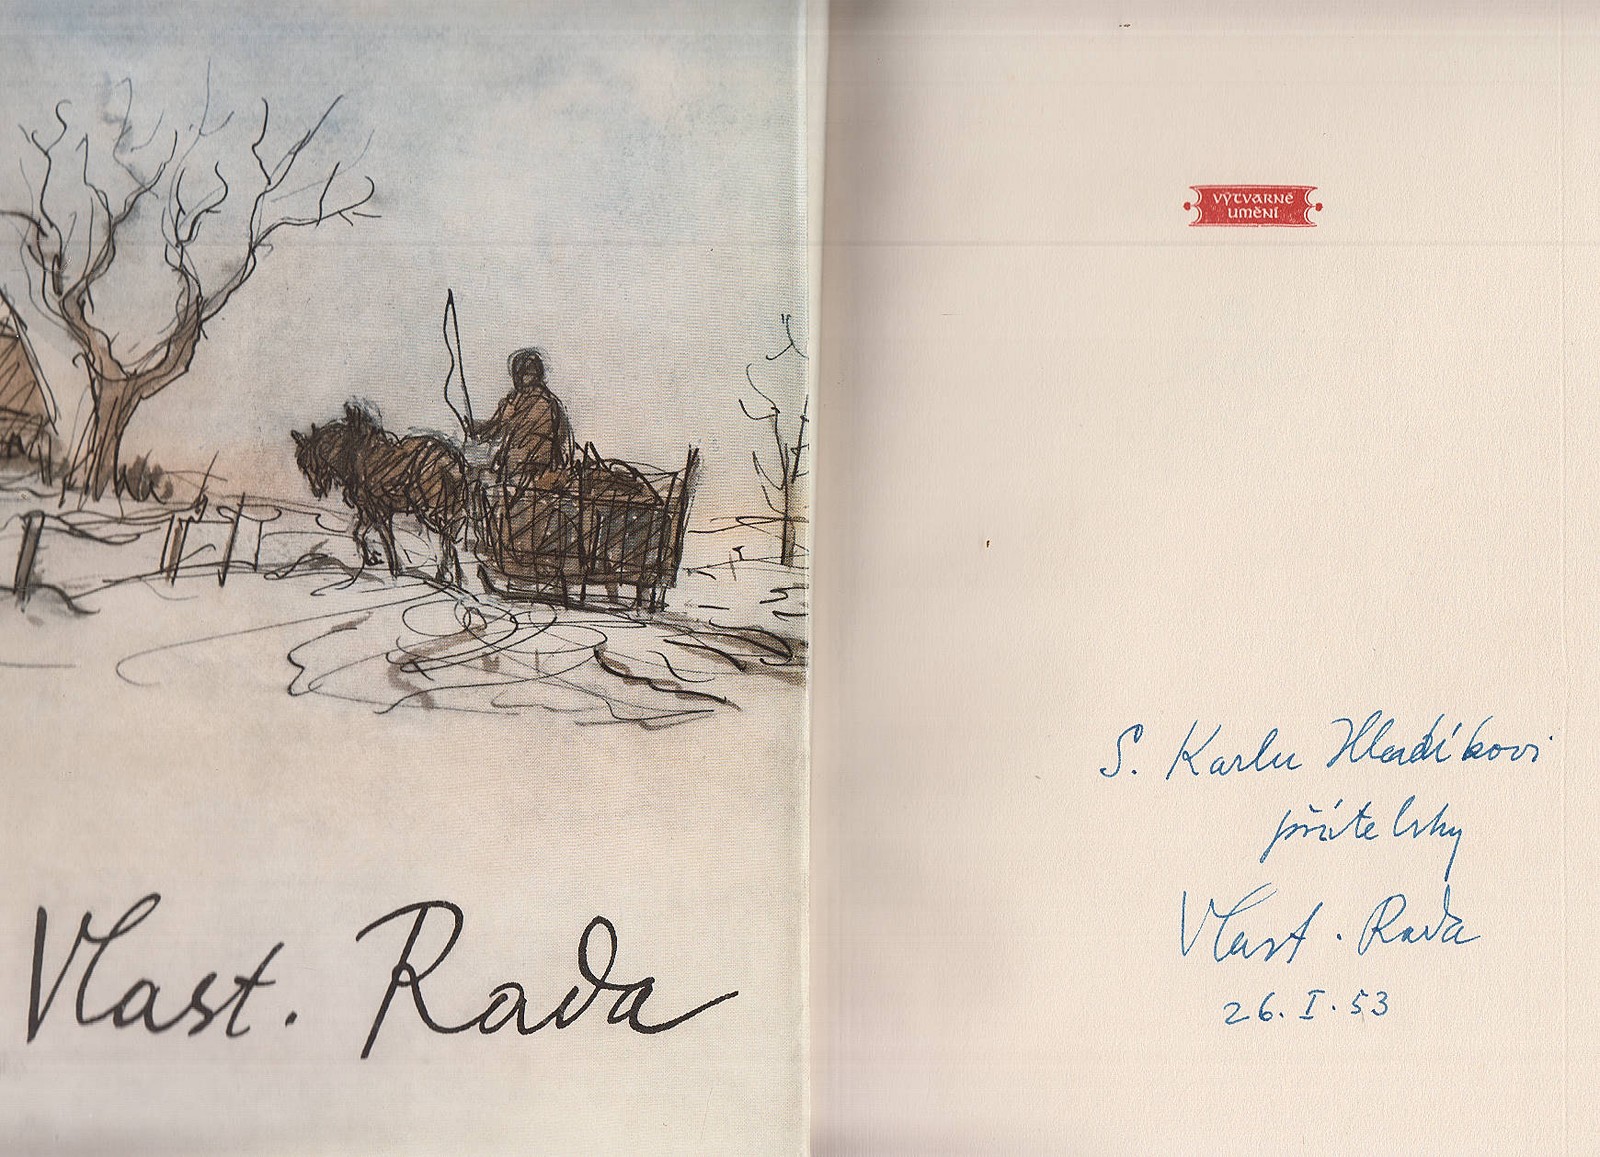 Vlast. Rada
VÝTVARNÉ
UMĚNÍ
S. Karlu Hladíkovi
přátelsky
Vlast. Rada
26. I. 53